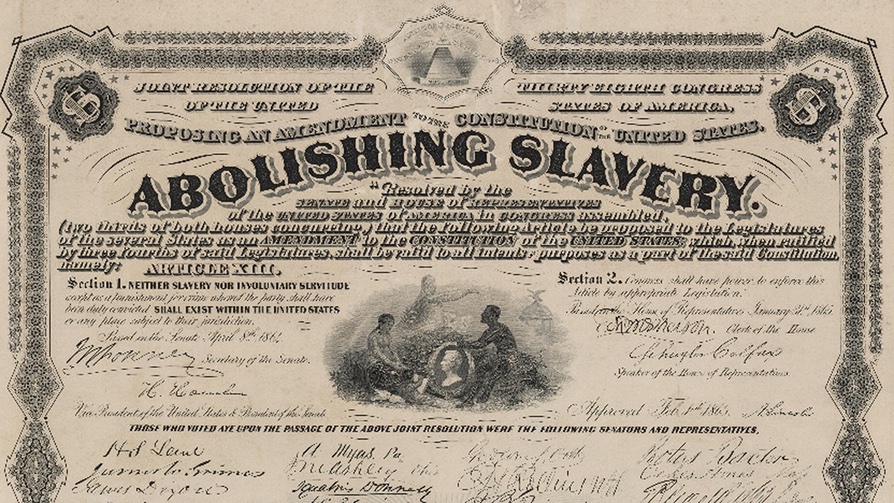 JOINT RESOLUTION OF THE THIRTY EIGHTH CONGRESS
OF THE UNITED STATES OF AMERICA,
PROPOSING AN AMENDMENT TO THE CONSTITUTION OF THE UNITED STATES,
ABOLISHING SLAVERY.
"Resolved by the
SENATE and HOUSE OF REPRESENTATIVES
of the UNITED STATES OF AMERICA in CONGRESS assembled,
(two thirds of both houses concurring), that the following Article be proposed to the Legislatures
of the several States as an AMENDMENT to the CONSTITUTION of the UNITED STATES; which, when ratified
by three fourths of said Legislatures, shall be valid to all intents & purposes as a part of the said Constitution,
namely: ARTICLE XIII.
Section 1. NEITHER SLAVERY NOR INVOLUNTARY SERVITUDE
except as a punishment for crime whereof the party shall have
been duly convicted SHALL EXIST WITHIN THE UNITED STATES
or any place subject to their jurisdiction.
Passed in the Senate April 8th 1864
Secretary of the Senate.
H. Hamlin
Vice President of the United States & President of the Senate
Section 2. Congress shall have power to enforce this
Article by appropriate Legislation."
Passed in the House of Representatives January 31st 1865
Clerk of the House
Schuyler Colfax
Speaker of the House of Representatives
Approved Feb. 1st 1865. A. Lincoln
THOSE WHO VOTED AYE UPON THE PASSAGE OF THE ABOVE JOINT RESOLUTION WERE THE FOLLOWING SENATORS AND REPRESENTATIVES,
H S Lane
Ignatius Donnelly